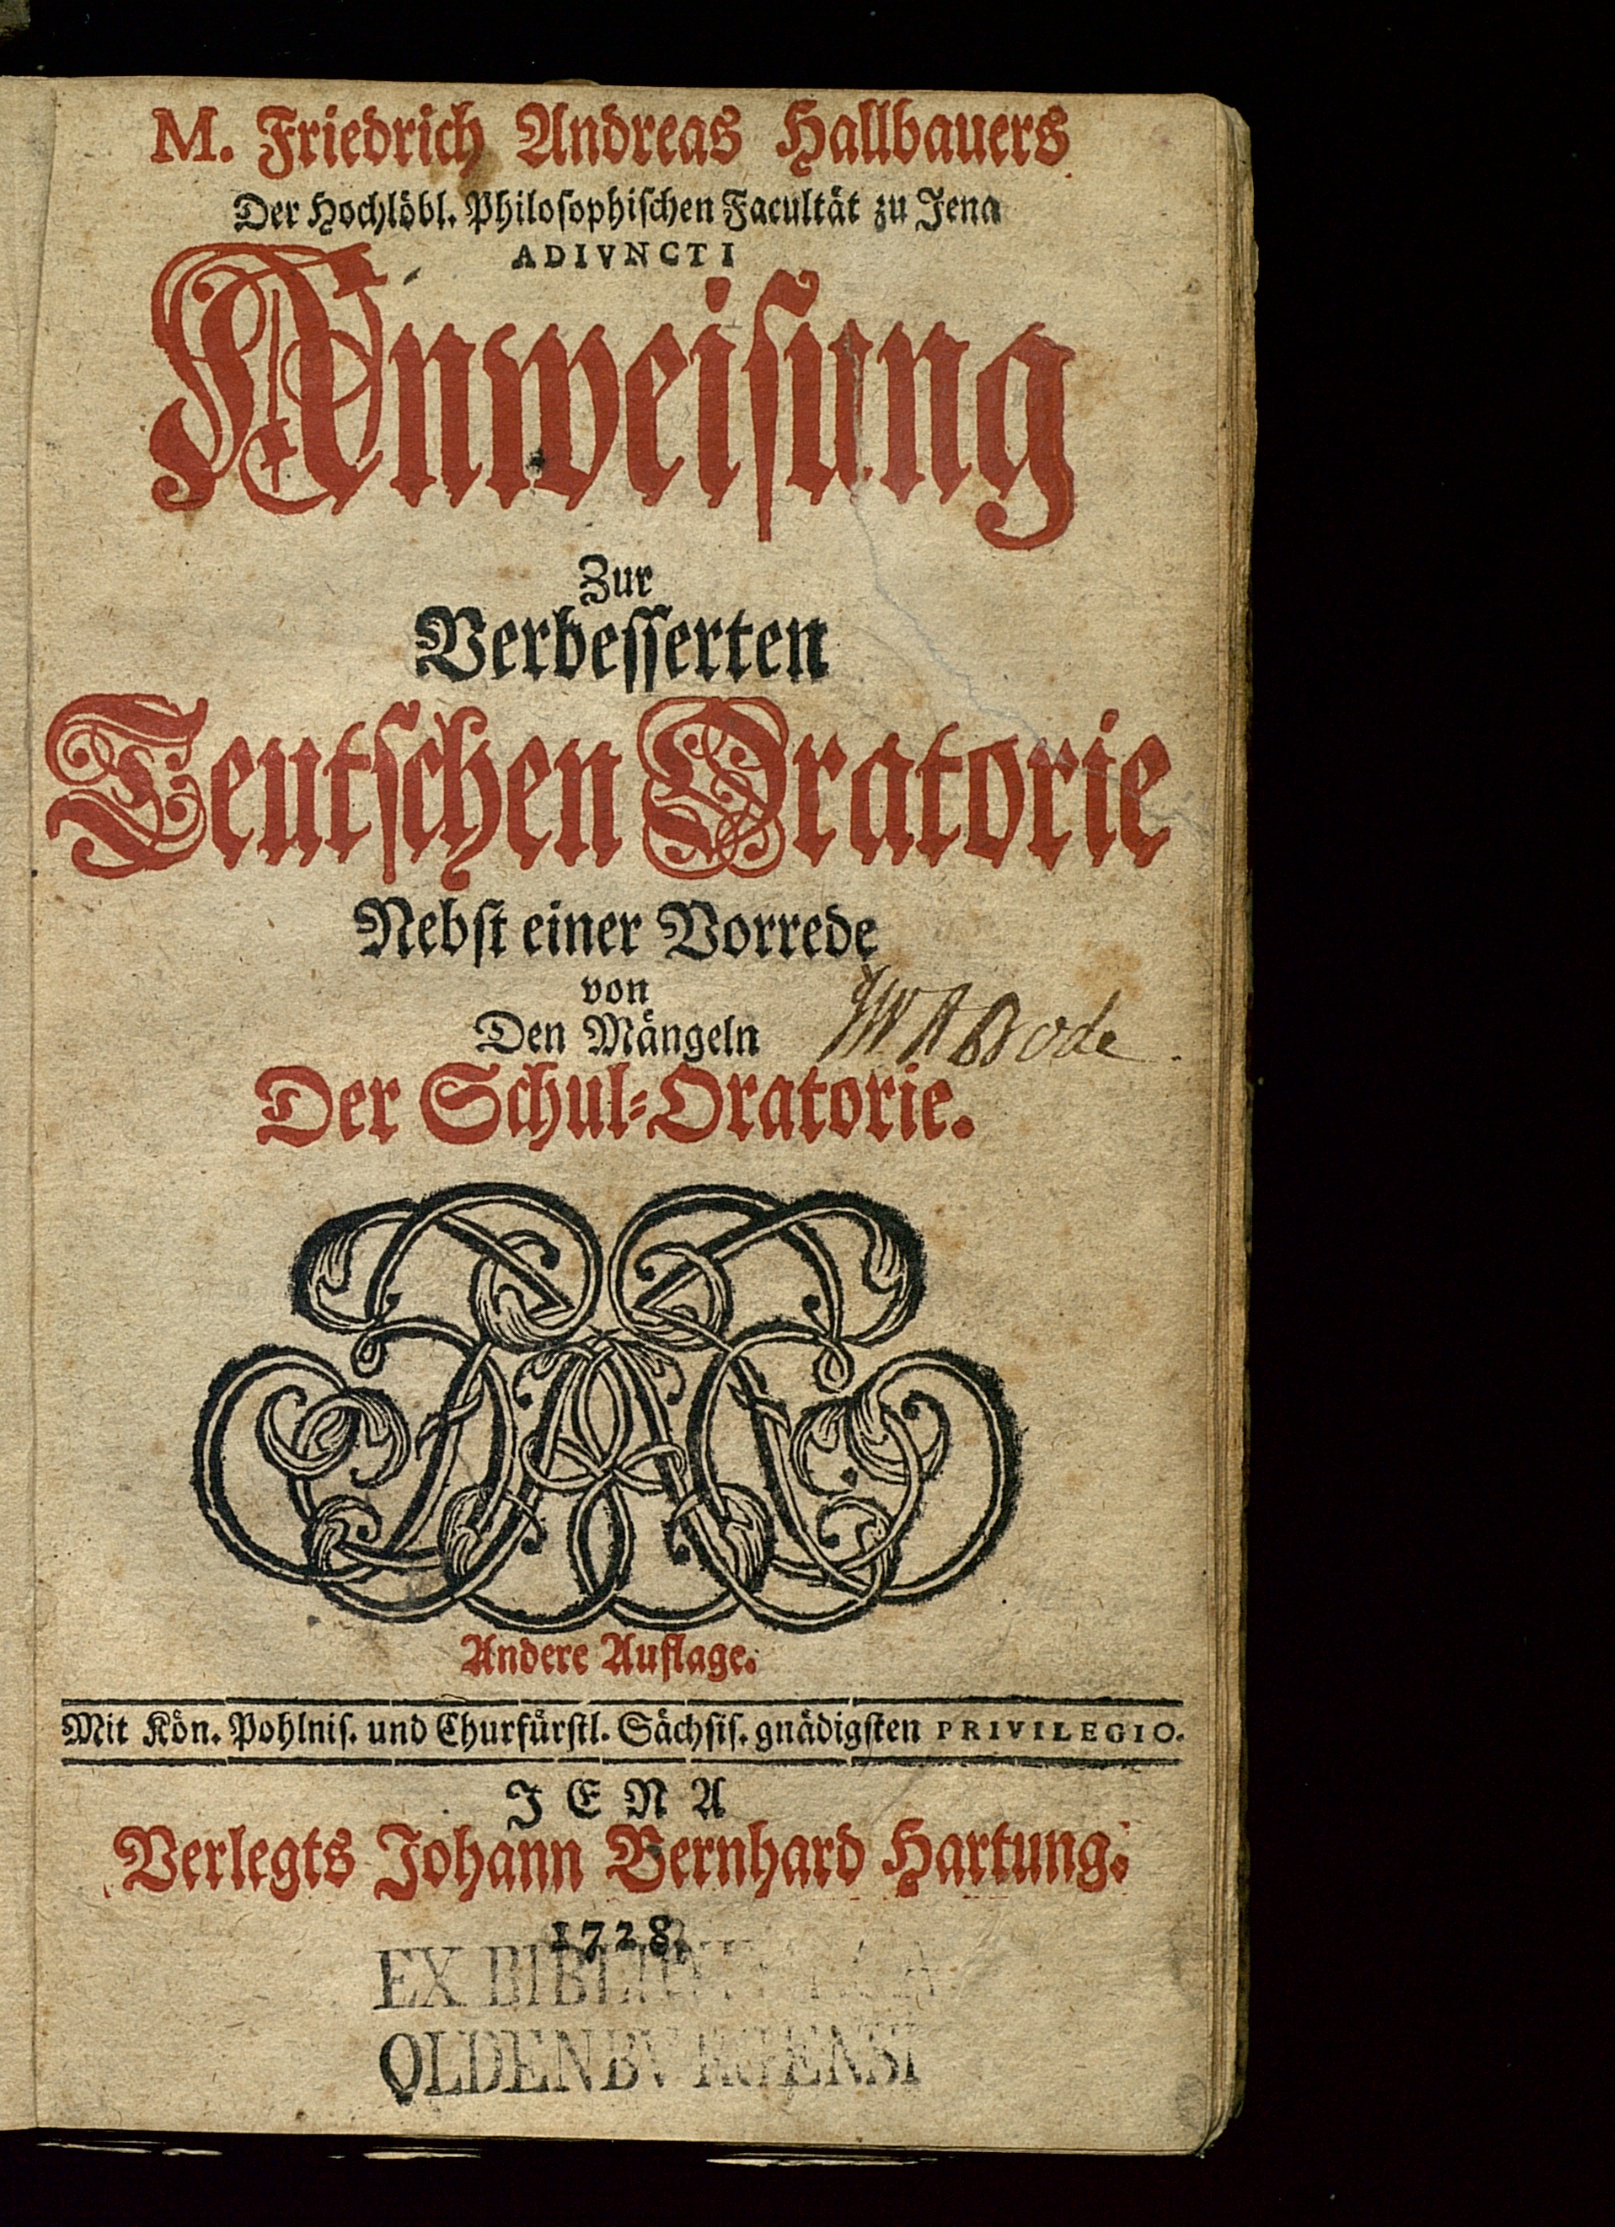 M. Friedrich Andreas Hallbauers
Der Hochlöbl. Philosophischen Facultät zu Jena
ADIVNCTI
Anweisung
Zur
Verbesserten
Teutschen Oratorie
Nebst einer Vorrede
von
Den Mängeln
Bode
Der Schul-Oratorie.
Andere Auflage.
Mit Kön. Pohlnis. und Churfürstl. Sächsis. gnädigsten PRIVILEGIO.
JENA
Verlegts Johann Bernhard Hartung.
1728.
EX BIBLIOTHECA
OLDENBVRGENSI